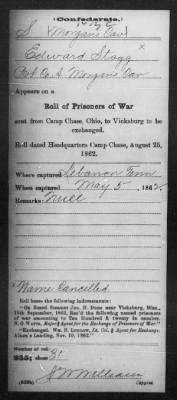 (Confederate.)
S Morgan's Cav
Edward Stagg
Pvt Co. A. Morgan's Cav
Appears on a
Roll of Prisoners of War
sent from Camp Chase, Ohio, to Vicksburg to be
exchanged.
Roll dated Headquarters Camp Chase, August 25,
1862.
Where captured Lebanon Tenn
When captured May 5, 1862.
Remarks:
Name Cancelled
Roll bears the following indorsements:
"On Board Steamer Jno. H. Done near Vicksburg, Miss.,
15th September, 1862, Rec'd the following named prisoners
of war amounting to Ten Hundred & twenty in number.
N. G. Watts, Major & Agent for the Exchange of Prisoners of War."
"Exchanged. Wm. H. Ludlow, Lt. Col. & Agent for Exchange.
Aiken's Landing, Nov. 10, 1862."
Number of roll:
sheet 31
Copyist.